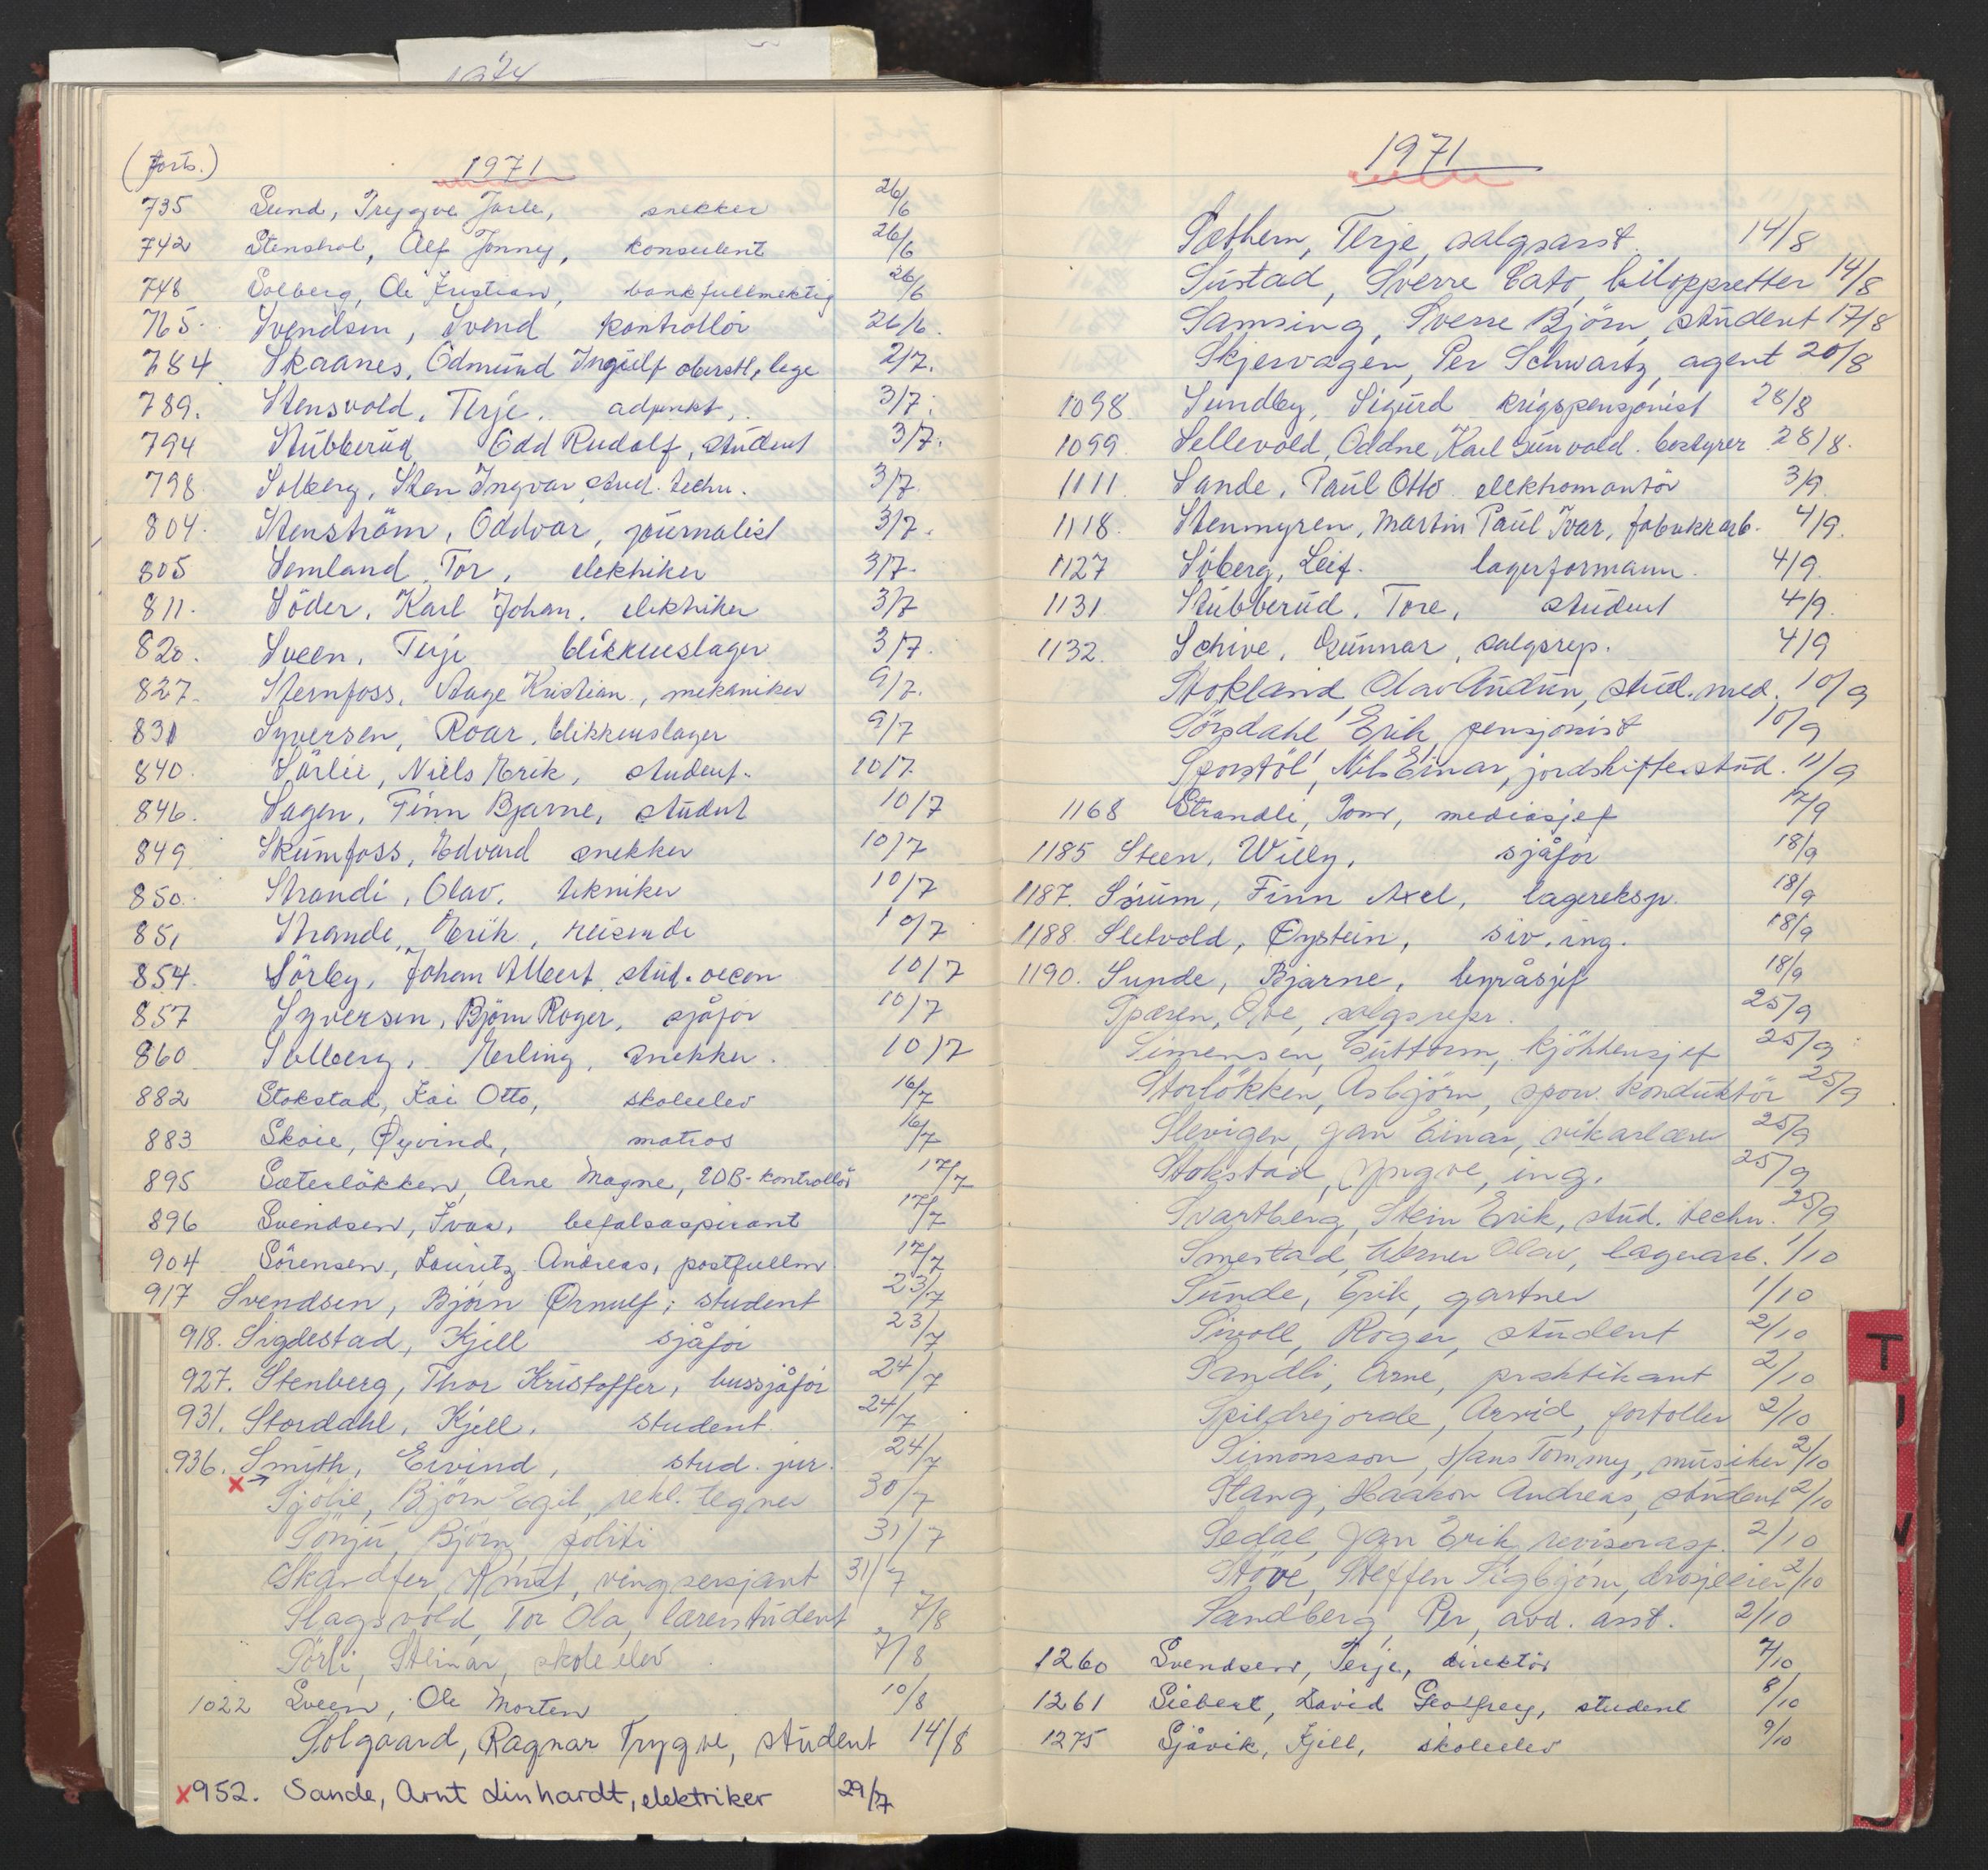 1974
(forts.) 1971
735 Lund, Tryggve Jarle, snekker 26/6
742 Stenshol, Alf Jonny, konsulent 26/6
748 Solberg, Ole Kristian, bankfullmektig 26/6
765. Svendsen, Svend kontrollör 26/6.
784 Skaanes, Odmund Ingulf oberstl, lege 2/7.
789. Stensvold, Terje, adjunkt, 3/7.
794 Stubberud Odd Rudolf, student 3/7.
798 Solberg, Sten Ingvar stud. techn. 3/7
804. Stenström, Oddvar, journalist 3/7.
805 Semland Tor, elektriker 3/7.
811. Söder, Karl Johan, elektriker 3/7
820. Sveen, Terje blikkenslager 3/7.
827. Sternfoss, Aage Kristian, mekaniker 9/7.
831 Syversen, Roar, blikkenslager 9/7
840. Sörlie, Niels Erik, student. 10/7.
846. Sagen, Finn Bjarne, student 10/7
849 Skumfoss, Edvard snekker 10/7
850. Strandi, Olav. tekniker 10/7
851 Strande, Erik, reisende 10/7
854. Sörby, Johan Albert stud. oecon 10/7
857 Syversen, Björn Roger, sjåför 10/7
860 Solberg, Erling, snekker. 10/7
882 Stokstad, Kai Otto, skoleelev 16/7
883 Skoie, Øyvind, matros 16/7
895 Sæterlökken, Arne Magne, EDB-kontrollör 17/7
896 Svendsen, Ivar, befalsaspirant 17/7
904 Sörensen, Lauritz Andreas, postfullm 17/7
917 Svendsen, Björn Ørnulf, student 23/7
918. Sigdestad, Kjell sjåför 23/7
927. Stenberg, Thor Kristoffer, bussjåför 24/7
931. Stordahl, Kjell, student. 24/7
936. Smith, Eivind, stud. jur. 24/7
x → Sjölie, Björn Egil, rekl. tegner 30/7
Sönju, Björn, politi 31/7
Skardfer, Knut, vingsersjant 31/7
Slagsvold, Tor Ola, lærerstudent 7/8
Sörli, Steinar, skoleelev 7/8
1022 Sveen, Ole Morten 10/8
Solgaard, Ragnar Trygve, student 14/8
x952. Sande, Arnt Linhardt, elektriker 29/7
1971
Sæthern, Terje, salgsasst. 14/8
Sustad, Sverre Cato, biloppretter 14/8
Samsing, Sverre Björn, student 17/8
Skjervagen, Per Schwartz, agent 20/8
1098 Sundby, Sigurd krigspensjonist 28/8
1099 Sellevold, Oddne Karl Gunvald. bestyrer 28/8.
1111 Sande, Paul Otto elektromontör 3/9
1118. Stenmyren, Martin Paul Ivar, fabrikkarb. 4/9.
1127 Söberg, Leif. lagerformann. 4/9
1131 Stubberud, Tore, student 4/9.
1132. Schive, Gunnar, salgsrep. 4/9
Stokland Olav Audun, stud. med. 10/9
Sörsdahl Erik pensjonist 10/9
Sporstöl, Nils Einar, jordskifte.stud. 11/9
1168 Strandli, Tom, mediasjef 17/9
1185 Steen, Willy, sjåför 18/9
1187. Sörum, Finn Axel, lagereksp. 18/9
1188. Sletvold, Øystein, siv. ing. 18/9
1190. Sunde, Bjarne, byråsjef 18/9
Sparen, Ove, salgsrepr. 25/9
Simensen, Guttorm, kjökkensjef 25/9
Storlökken, Asbjörn, sporv. konduktör 25/9
Slevigen, Jan Einar, vikarlærer 25/9
Stokstad, Yngve, ing. 25/9
Svartberg, Stein Erik, stud. techn. 25/9
Smestad, Werner Olav, lagerarb. 1/10
Sunde, Erik, gartner 1/10
Sivoll, Roger, student 2/10
Sandli, Arne, praktikant 2/10
Spildrejorde, Arvid, fortoller 2/10
Simonsson, Hans Tommy, musiker 2/10
Stang, Haakon Andreas, student 2/10
Sedal, Jan Erik, revisorasp. 2/10
Stöve, Steffen Sigbjörn, drosjeeier 2/10
Sandberg, Per, avd. asst. 2/10
1260 Svendsen, Terje, direktör 7/10
1261 Siebert, David Geoffrey, student 8/10
1275 Sjåvik, Kjell, skoleelev 9/10
T